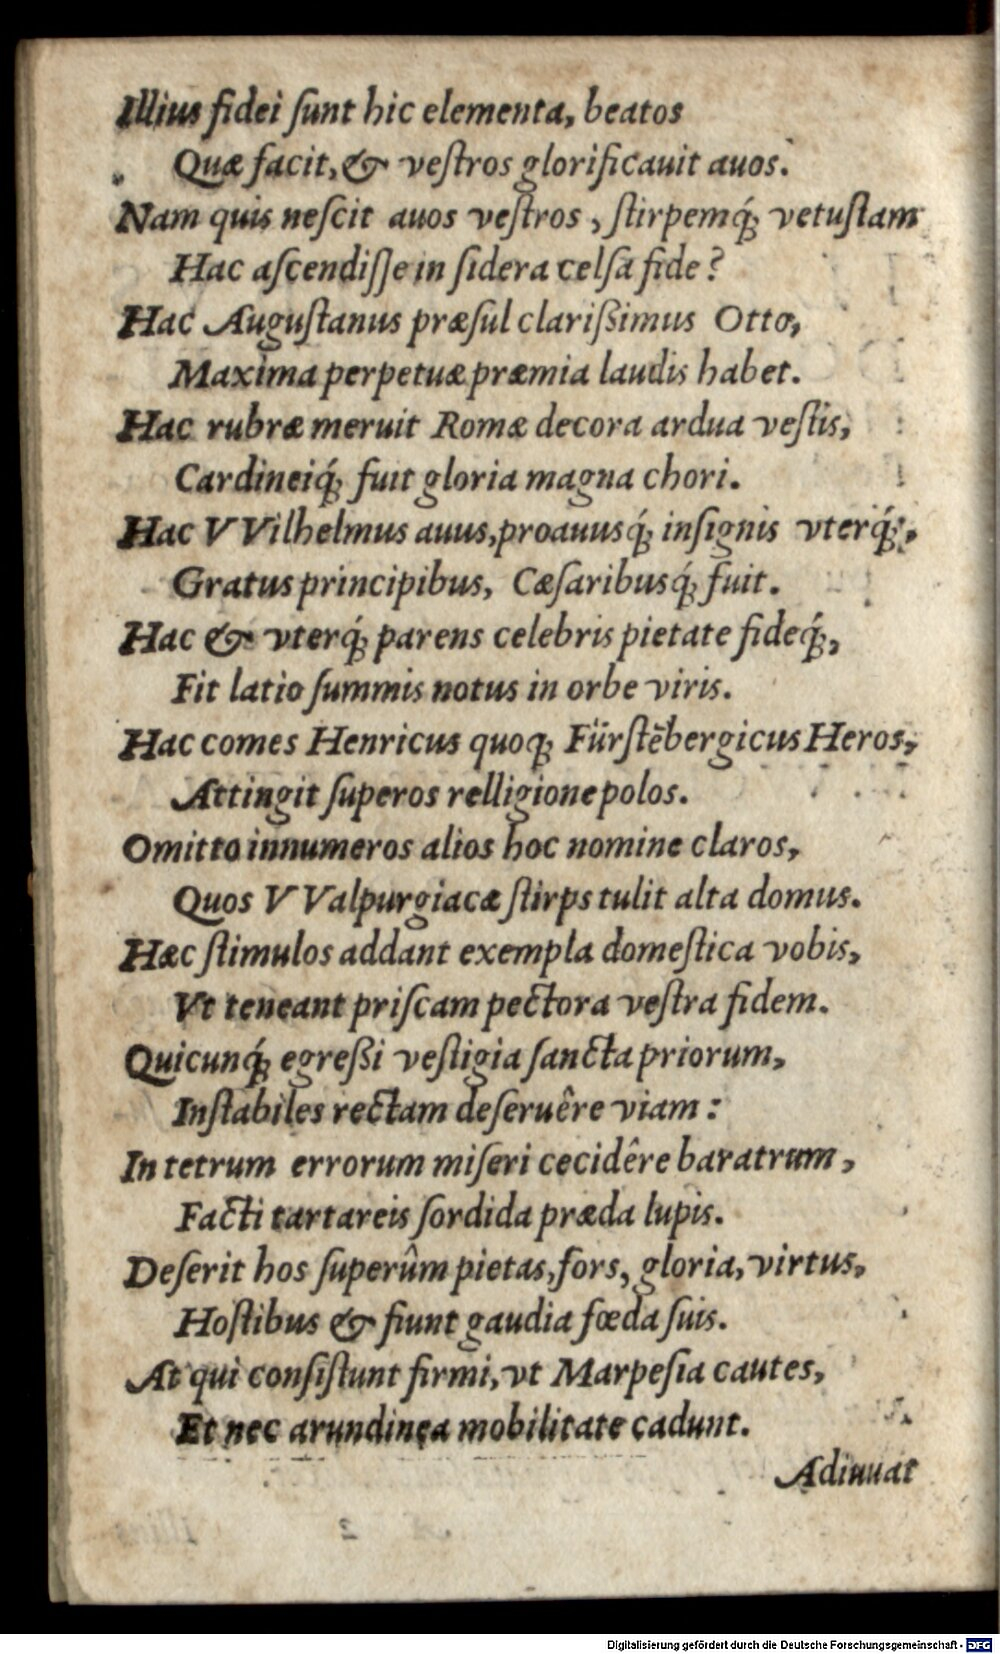 Illius fidei ſunt hic elementa, beatos
Quæ facit, & veſtros glorificauit auos.
Nam quis neſcit auos veſtros, ſtirpemq́; vetuſtam
Hac aſcendiſſe in ſidera celſa fide?
Hac Auguſtanus præſul clarißimus Otto,
Maxima perpetuæ præmia laudis habet.
Hac rubræ meruit Romæ decora ardua veſtis,
Cardineiq́; fuit gloria magna chori.
Hac VVilhelmus auus, proauusq́; inſignis vterq́;,
Gratus principibus, Cæſaribusq́; fuit.
Hac & vterq́; parens celebris pietate fideq́;,
Fit latio ſummis notus in orbe viris.
Hac comes Henricus quoq; Fürſtēbergicus Heros,
Attingit ſuperos relligione polos.
Omitto innumeros alios hoc nomine claros,
Quos VValpurgiacæ ſtirps tulit alta domus.
Hæc ſtimulos addant exempla domeſtica vobis,
Vt teneant priſcam pectora veſtra fidem.
Quicunq́; egreßi veſtigia ſancta priorum,
Inſtabiles rectam deſeruêre viam:
In tetrum errorum miſeri cecidêre baratrum,
Facti tartareis ſordida præda lupis.
Deſerit hos ſuperûm pietas, fors, gloria, virtus,
Hoſtibus & fiunt gaudia fœda ſuis.
At qui conſiſtunt firmi, vt Marpeſia cautes,
Et nec arundinea mobilitate cadunt.
Adiuuat
Digitalisierung gefördert durch die Deutsche Forschungsgemeinschaft - DFG